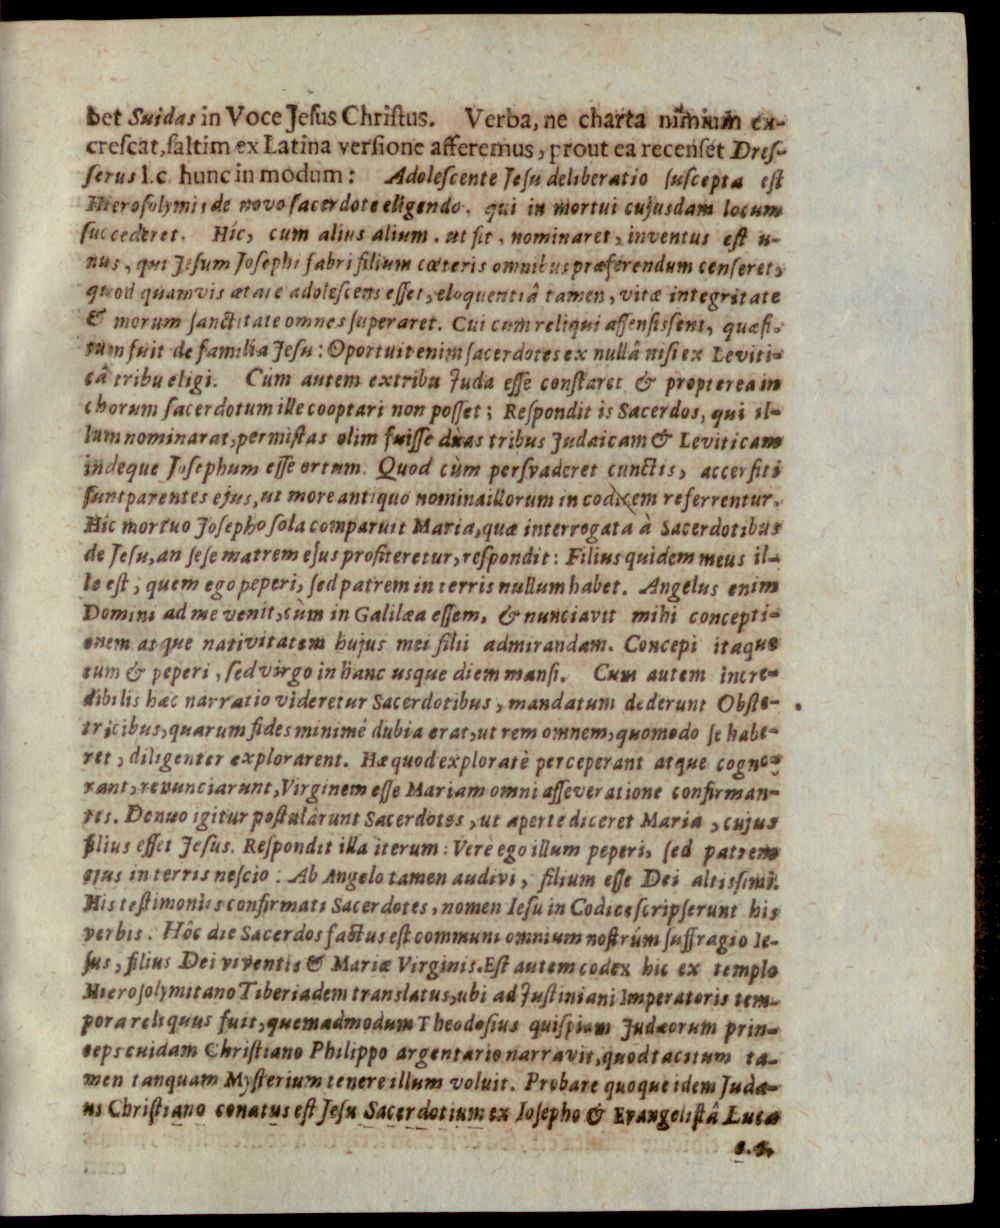 bet Suidas in Voce Jesus Christus. Verba, ne charta nimium ex-
crescat, saltim ex Latina versione afferemus, prout ea recenset Dres-
serus l.c. hunc in modum: Adolescente Jesu deliberatio suscepta est
Hierosolymis de novo sacerdote eligendo, qui in mortui cujusdam locum
succederet. Hic, cum alius alium, ut fit, nominaret, inventus est u-
nus, qui Jesum Josephi fabri filium cœteris omnibus præferendum censeret,
quod quamvis ætate adolescens esset, eloquentiâ tamen, vitæ integritate
& morum sanctitate omnes superaret. Cui cum reliqui assensissent, quæsi-
tum fuit de familia Jesu: Oportuit enim sacerdotes ex nullâ nisi ex Leviti-
câ tribu eligi. Cùm autem ex tribu Juda esse constaret & propterea in
chorum sacerdotum ille cooptari non posset; Respondit is Sacerdos, qui il-
lum nominarat, permistas olim fuisse duas tribus Judaicam & Leviticam
indeque Josephum esse ortum. Quod cùm persvaderet cunctis, accersiti
sunt parentes ejus, ut more antiquo nomina illorum in codicem referrentur.
Hic mortuo Josepho sola comparuit Maria, quæ interrogata à Sacerdotibus
de Jesu, an sese matrem ejus profiteretur, respondit: Filius quidem meus il-
le est, quem ego peperi, sed patrem in terris nullum habet. Angelus enim
Domini ad me venit, cùm in Galilæa essem, & nunciavit mihi concepti-
onem atque nativitatem hujus mei filii admirandam. Concepi itaque
eum & peperi, sed virgo in hanc usque diem mansi. Cum autem incre-
dibilis hæc narratio videretur Sacerdotibus, mandatum dederunt Obste-
tricibus, quarum fides minimé dubia erat, ut rem omnem, quomodo se habe-
ret, diligenter explorarent. Hæ quod exploratè perceperant atque cogno-
rant, renunciarunt, Virginem esse Mariam omni asseveratione confirman-
tes. Denuo igitur postulârunt Sacerdotes, ut aperte diceret Maria, cujus
filius esset Jesus. Respondit illa iterum: Verè ego illum peperi, sed patrem
ejus in terris nescio: Ab Angelo tamen audivi, filium esse Dei altissimi.
His testimoniis confirmati Sacerdotes, nomen Iesu in Codice scripserunt his
verbis: Hôc die Sacerdos factus est communi omnium nostrúm suffragio Ie-
sus, filius Dei viventis & Mariæ Virginis. Est autem codex hic ex templo
Hierosolymitano Tiberiadem translatus, ubi ad Justiniani Imperatoris tem-
pora reliquus fuit, quemadmodum Theodosius quispiam Judæorum prin-
ceps cuidam Christiano Philippo argentario narravit, quod tacitum ta-
men tanquam Mysterium tenere illum voluit. Probare quoque idem Judæ-
us Christiano conatus est Jesu Sacerdotium ex Iosepho & Evangelistâ Luca